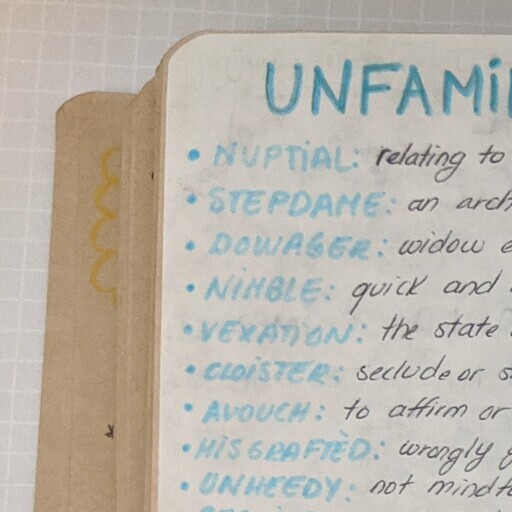 UNFAMI
• NUPTIAL: relating to
• STEPDAME: an arch
• DOWAGER: widow
• NIMBLE: quick and
• VEXATION: the state
• CLOISTER: seclude or s
• AVOUCH: to affirm or
• MISGRAFTÈD: wrongly g
• UNHEEDY: not mindf